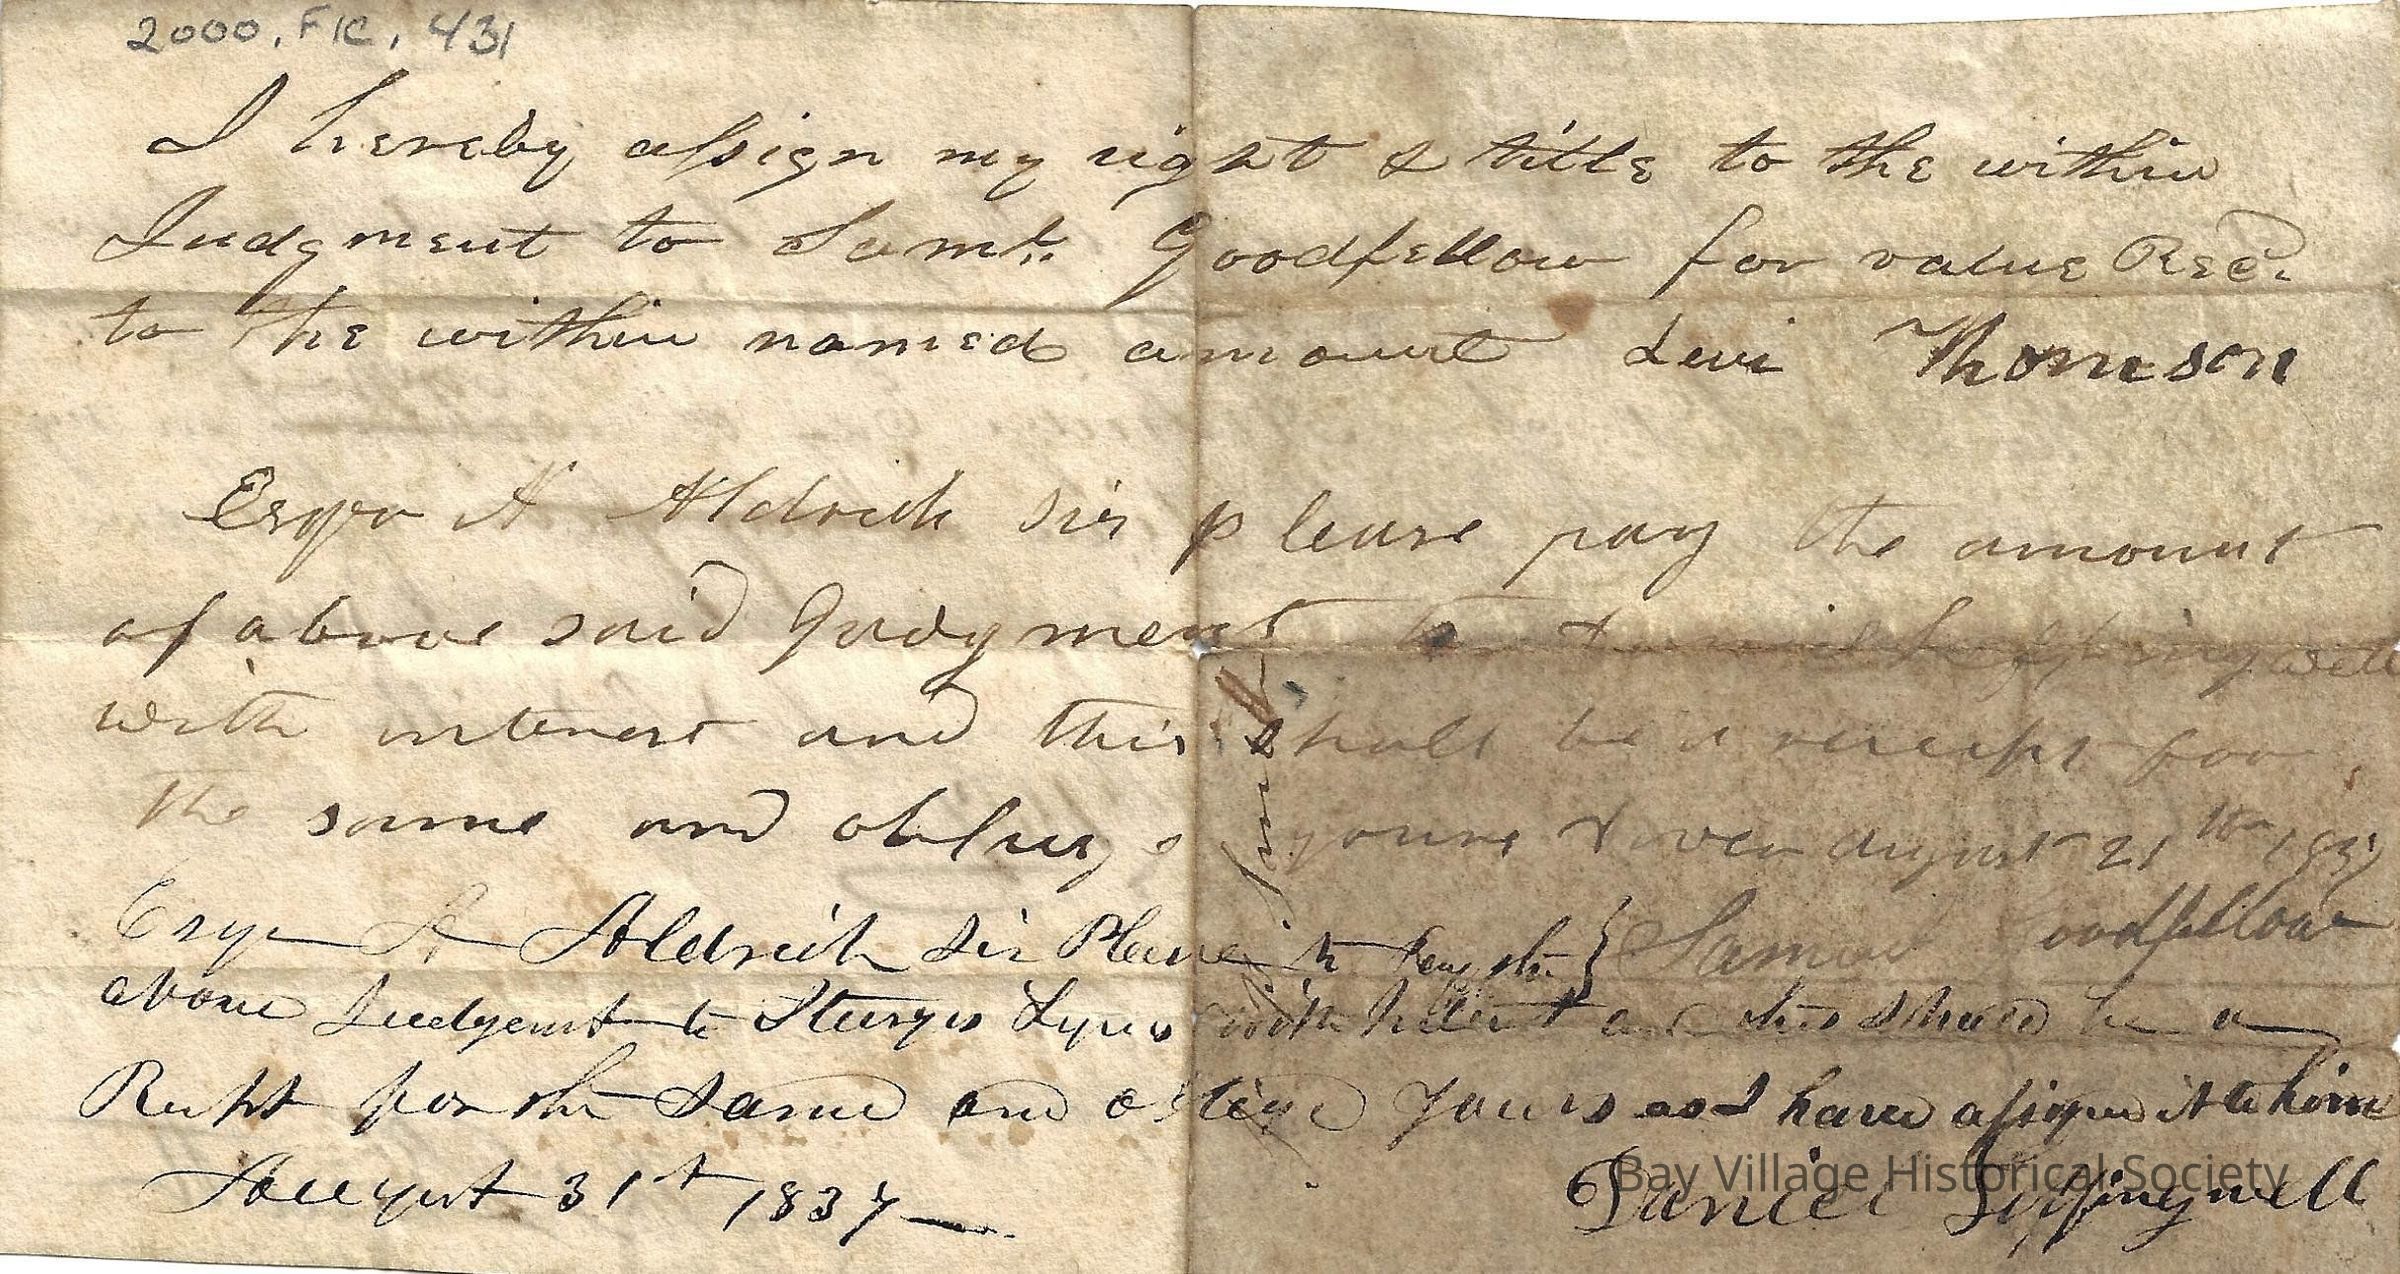 2000.FIC.431
I hereby assign my right & title to the within
Judgment to Saml. Goodfellow for value Recd.
to the within named amount Levi Thomson
Esqr A Aldrich sir please pay the amount
of above said Judgment to Daniel Leffingwell
with interest and this shall be a receipt for
the same and oblige yours Dover august 21th 1837
Samuel Goodfellow
Esqr A Aldrich Sir Please to Pay the
above Judgemt to Sturgis Lynes with Interst and this shall be a
Recpt for the same and oblige Yours as I have assigned it to him
August 31st 1837
Daniel Leffingwell
Bay Village Historical Society